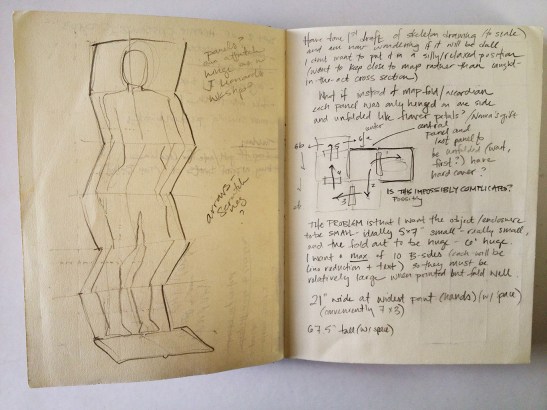 panels?
on
hinge as a
arrows -
?
Have done 1st draft of skeleton drawing (to scale)
and am now wondering if it will be dull
I don't want to put it in a silly/relaxed position
(want to keep close to map rather than caught-
in-the-act cross section)
What if instead of map-fold/accordian
each panel was only hinged on one side
and unfolded like flower petals? /Nana's gift
under
central
panel and
last panel to
be unfolded (want,
first?) have
hard cover?
IS THIS IMPOSSIBLY COMPLICATED?
THE PROBLEM is that I want the object/enclosure
to be SMALL - ideally 5x7" small - really small,
and the fold out to be huge - huge.
I want a max of 10 B-sides (each will be
line reduction + text) so they must be
relatively large when printed but fold well
21" wide at widest point (hands) (w/ space)
(conveniently 7x3)
67.5" tall (w/ space)